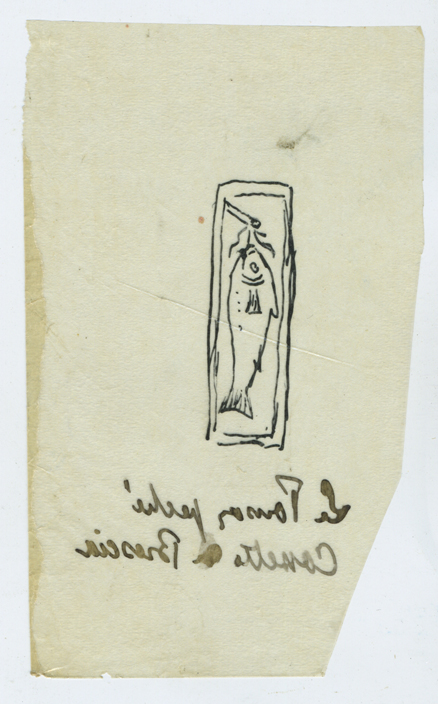 Le Poisson pêché
Coffret de Brescia